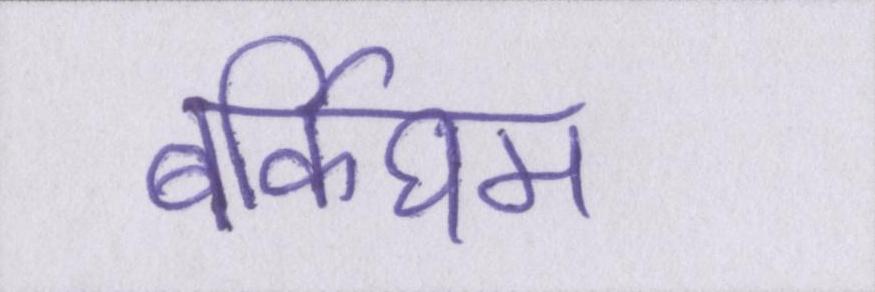 बर्किघम